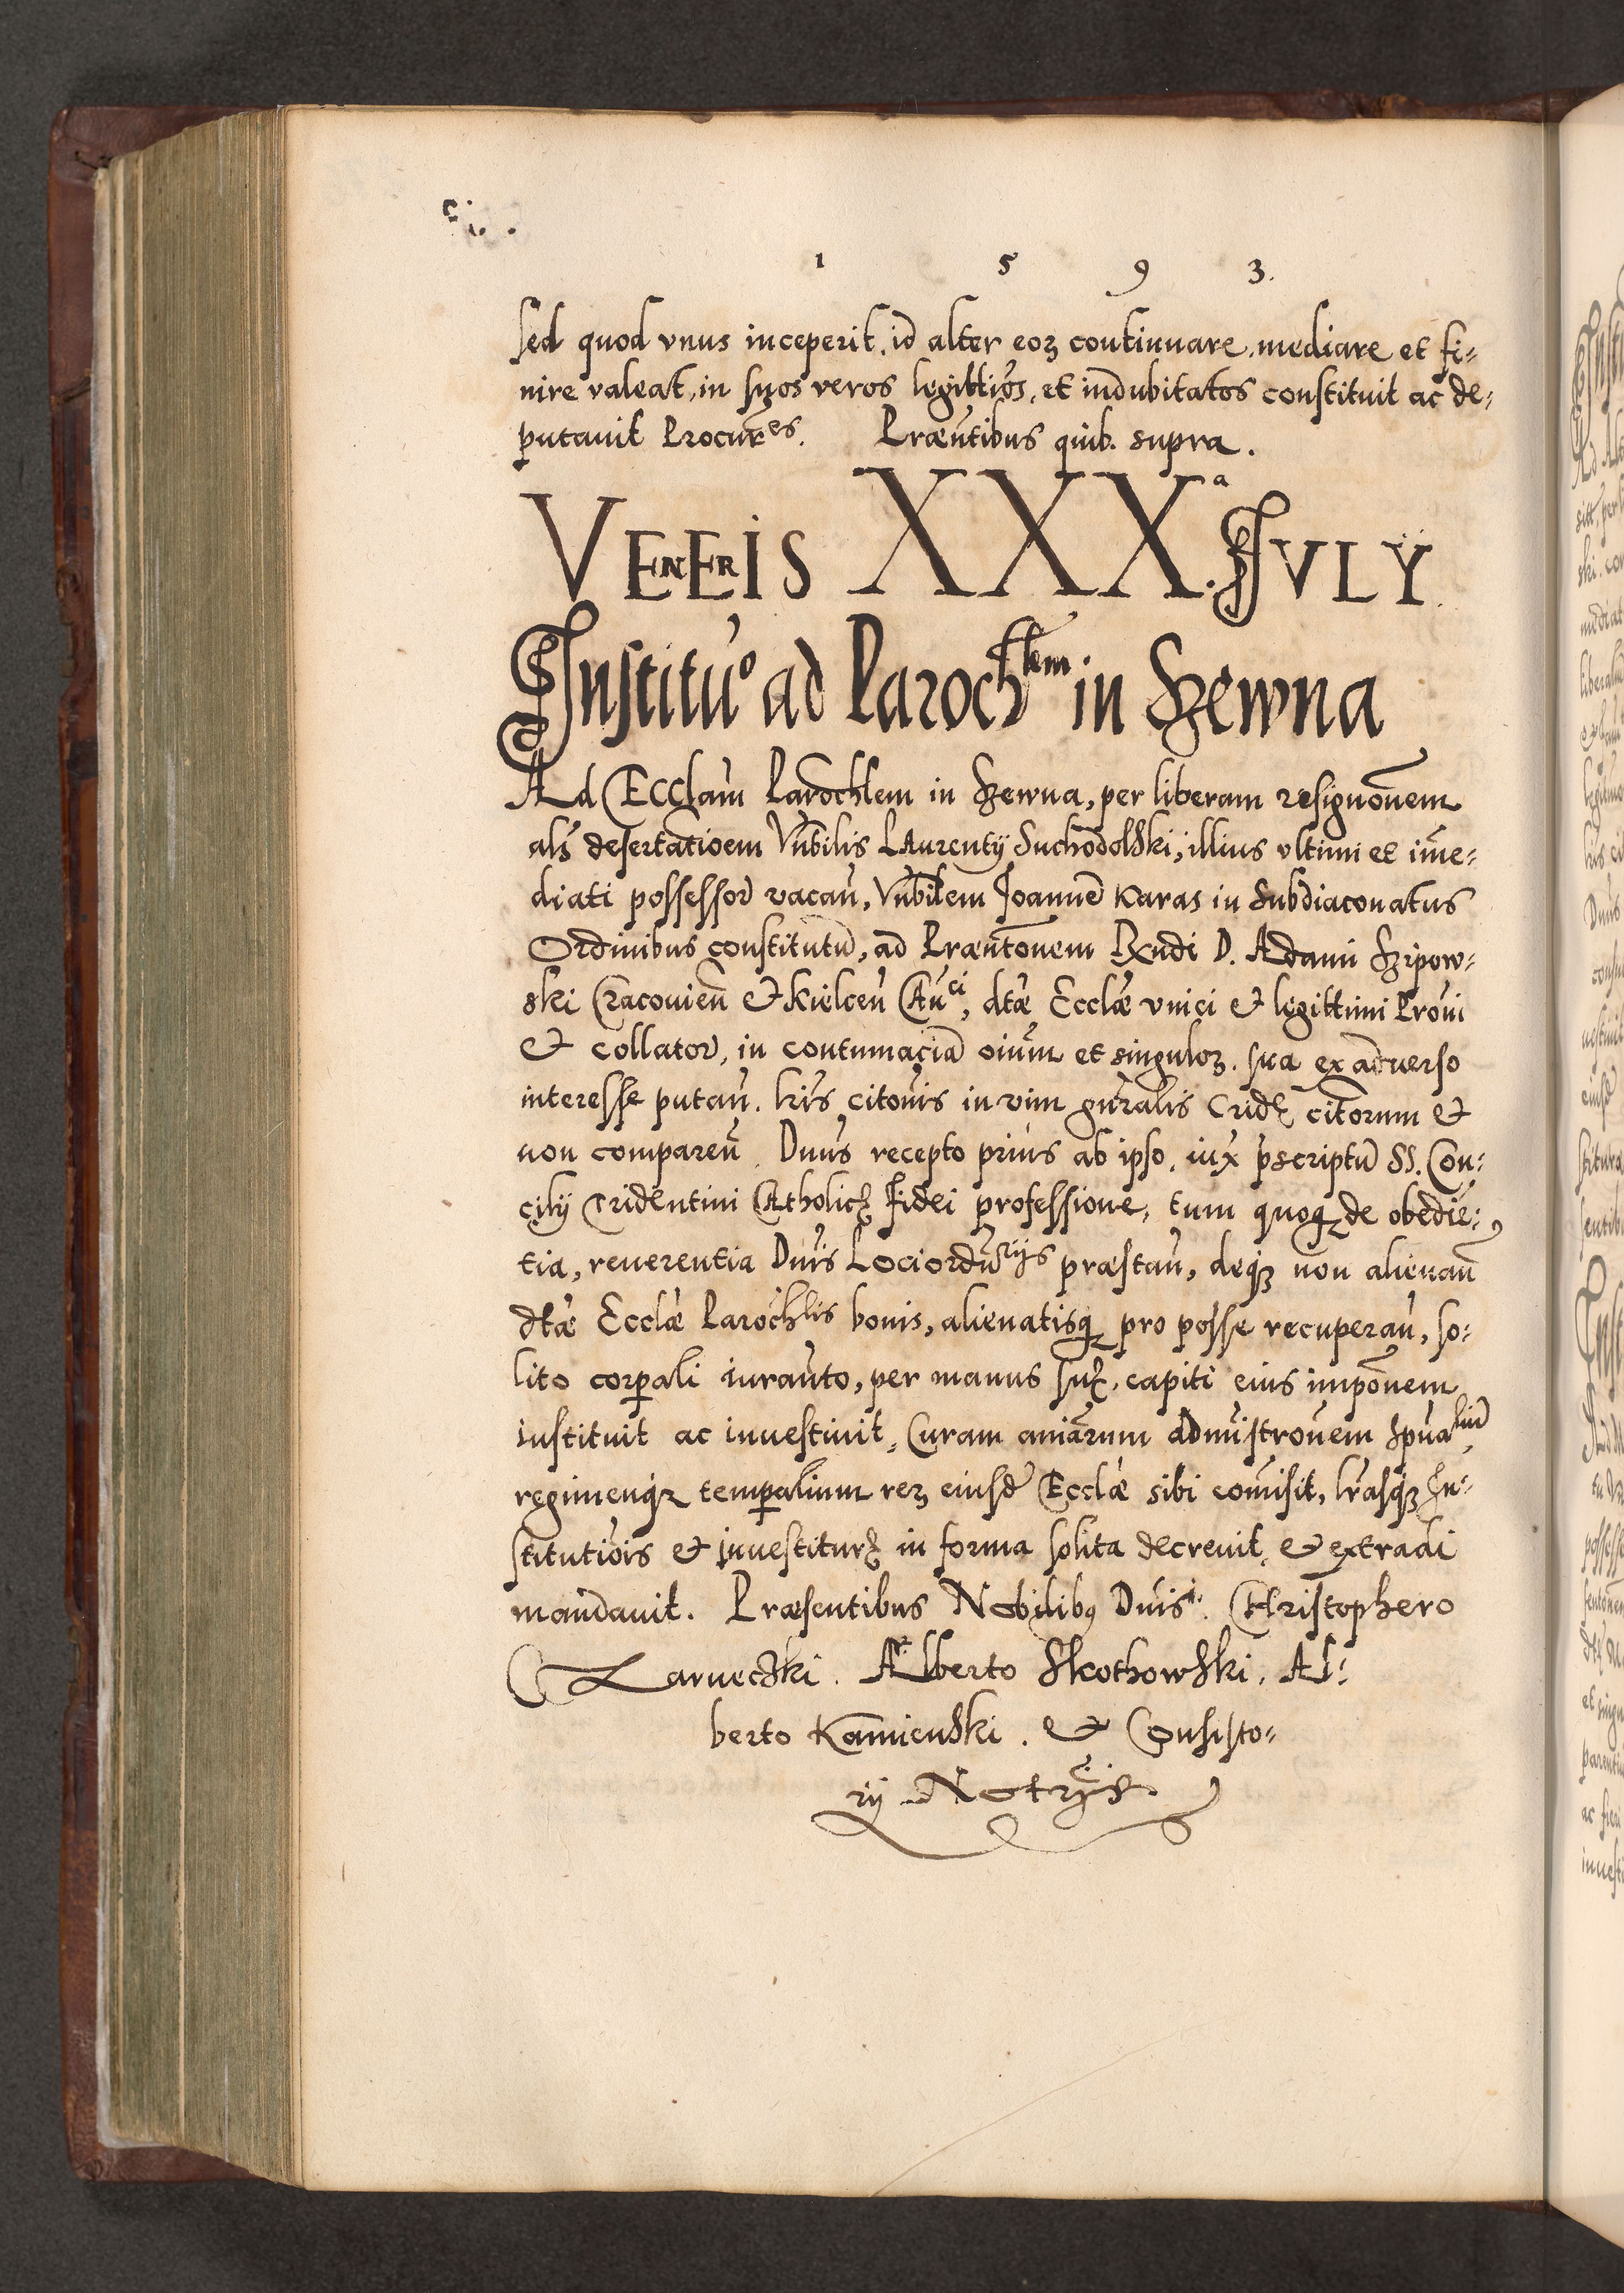 1 5 9 3.
sed quod vnus inceperit, id alter eoꝝ continuare, mediare et fi=
nire valeat, in suos veros legittiōs, et indubitatos constituit ac de=
putauit Procur̄es. Præn̄tibus quib. supra.
VENERIS XXX.ª IVLY
Institu̅o ad Paroch̄lem in Rzewna
Ad Eccl̄am Paroch̄lem in Rzewna, per liberam resign̄onem
al̄s desertatioem Vn̄bilis Laurentij Suchodolski, illius vltimi et im̄e=
diati possessor̄ vacan̄, Vn̄bilem Joannē Karas in Subdiaconatus
Ordinibus constitutū, ad Præn̄tonem Rn̄di D. Adami Rzipow=
ski Cracouien̄ et Kielcen̄ Can̄ci, dtæ Ecclæ vnici et legittimi Pro̅ui
et collator̄, in contumaciā oium̄ et singuloꝝ. sua ex aduerso
interesse putan̄. l̄ris citon̄is in vim gn̄ralis Cridę citorum et
non comparen̄. Dn̄us recepto prius ab ipso, iux p̄scriptū SS. Con=
cilij Tridentini Catholicę fidei professione, tum quoqꝫ de obediē=
tia, reuerentia Dn̄is Lociordin̄rijs præstan̄, deqꝫ non alienan̄
dtæ Ecclæ Paroch̄lis bonis, alienatisqꝫ pro posse recuperan̄, so=
lito corꝑali iuran̄to, per manus suę, capiti eius impōnem
instituit ac inuestiuit, Curam aniārum adm̄istron̄em spūalium̄
regimenqꝫ temꝑalium reꝝ eiusd̄ Ecclæ sibi com̄isit, l̄rasqꝫ In=
stitutiōis et inuestiturę in forma solita decreuit, et extradi
mandauit. Præsentibus Nobilibꝰ Dn̄is. Christophero
Zarneczki. Alberto Skothowski, Al=
berto Kamienski. et Consisto=
rij Notr̄ijs.